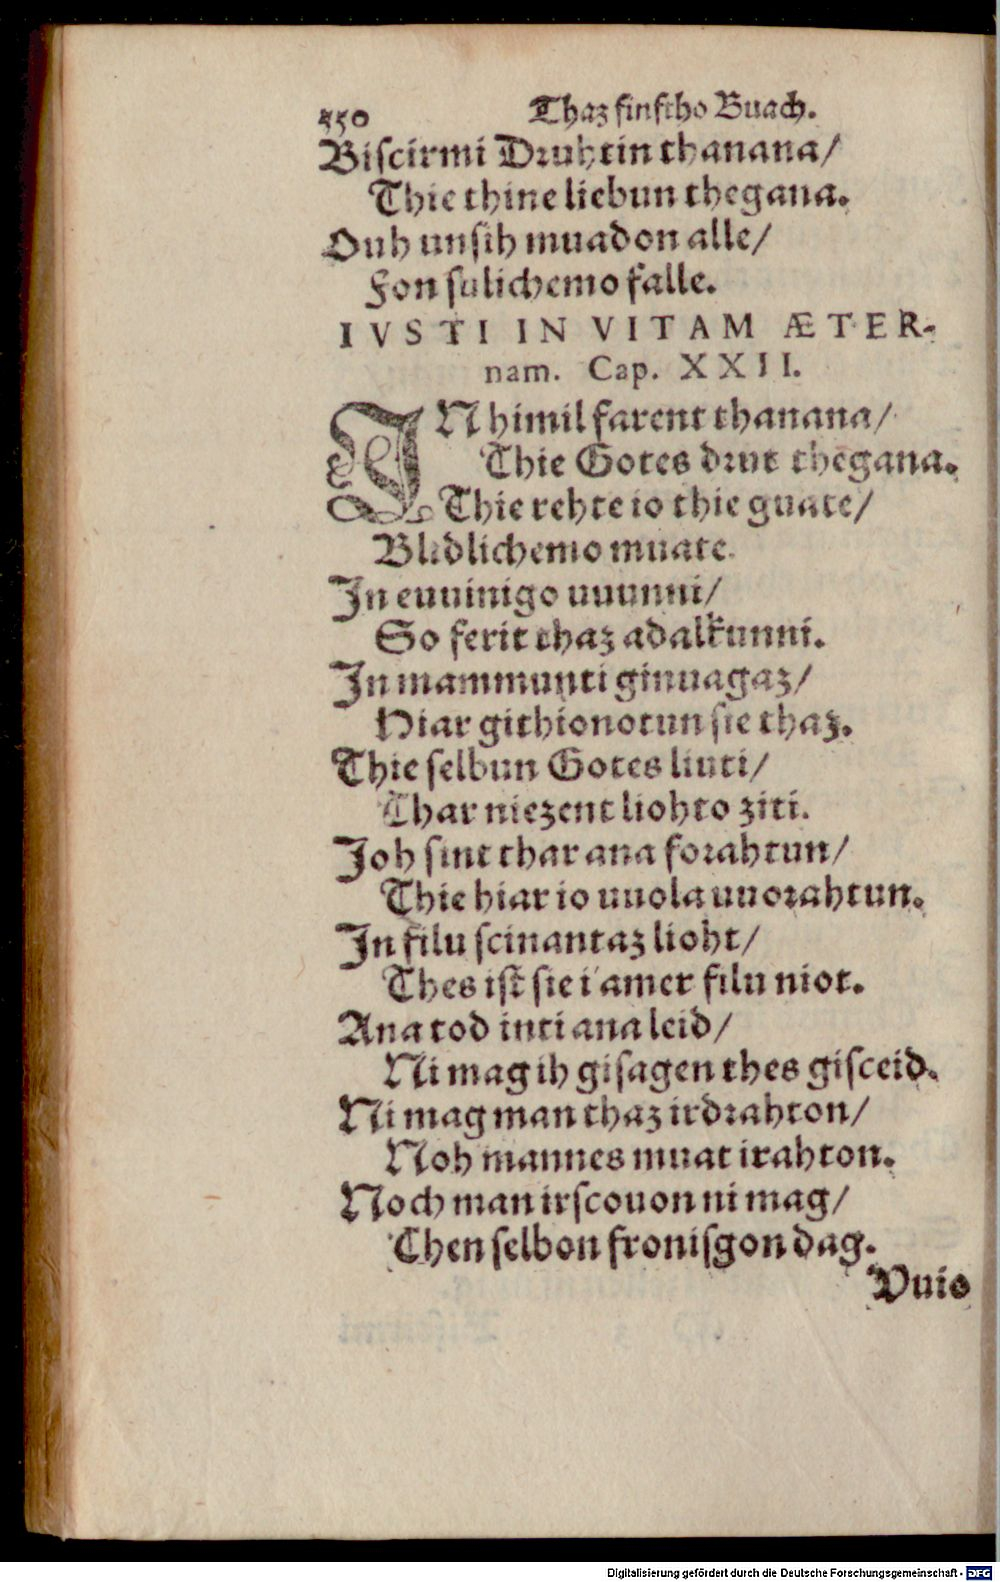 550 Thaz finftho Buach.
Biscirmi Druhtin thanana/
Thie thine liebun thegana.
Ouh unsih muadon alle/
Fon sulichemo falle.
IVSTI IN VITAM ÆTER-
nam. Cap. XXII.
IN himil farent thanana/
Thie Gotes drut thegana.
Thie rehte io thie guate/
Blidlichemo muate.
In euuinigo uuunni/
So ferit thaz adalkunni.
In mammunti ginuagaz/
Hiar githionotun sie thaz.
Thie selbun Gotes liuti/
Thar niezent liohto ziti.
Joh sint thar ana forahtun/
Thie hiar io uuola uuorahtun.
In filu scinantaz lioht/
Thes ist sie i amer filu niot.
Ana tod inti ana leid/
Ni mag ih gisagen thes gisceid.
Ni mag man thaz irdrahton/
Noh mannes muat irahton.
Noch man irscouon ni mag/
Then selbon fronisgon dag.
Vuio
Digitalisierung gefördert durch die Deutsche Forschungsgemeinschaft - DFG